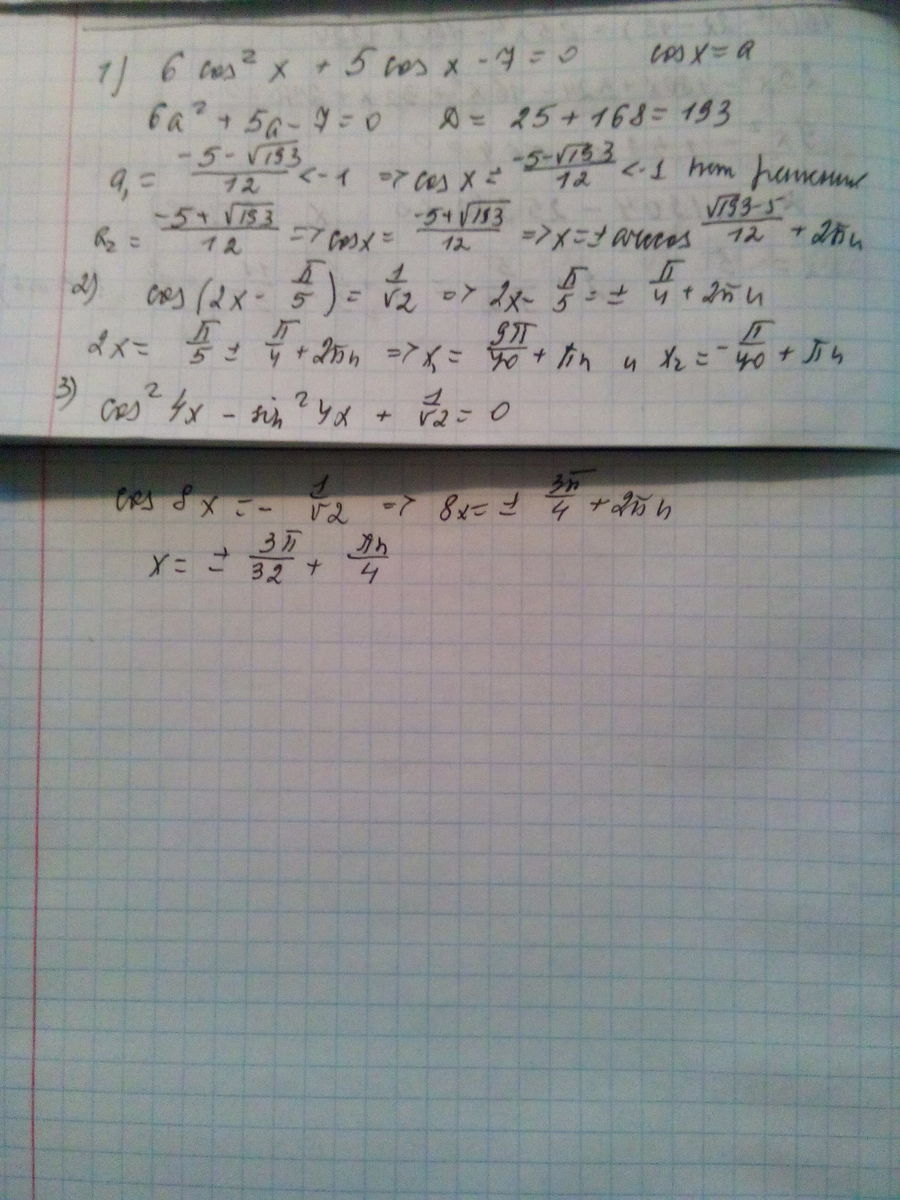 1) 6 cos² x + 5 cos x - 7 = 0 cos x = a
6a² + 5a - 7 = 0 D = 25 + 168 = 193
a₁ = (-5-√193)/12 < -1 => cos x = (-5-√193)/12 < -1 нет решения
a₂ = (-5+√193)/12 => cos x = (-5+√193)/12 => x = ± arccos (√193-5)/12 + 2πn
2) cos(2x - π/5) = 1/√2 => 2x - π/5 = ± π/4 + 2πn
2x = π/5 ± π/4 + 2πn => x₁ = 9π/40 + πn и x₂ = -π/40 + πn
3) cos² 4x - sin² 4x + 1/√2 = 0
cos 8x = - 1/√2 => 8x = ± 3π/4 + 2πn
x = ± 3π/32 + πn/4